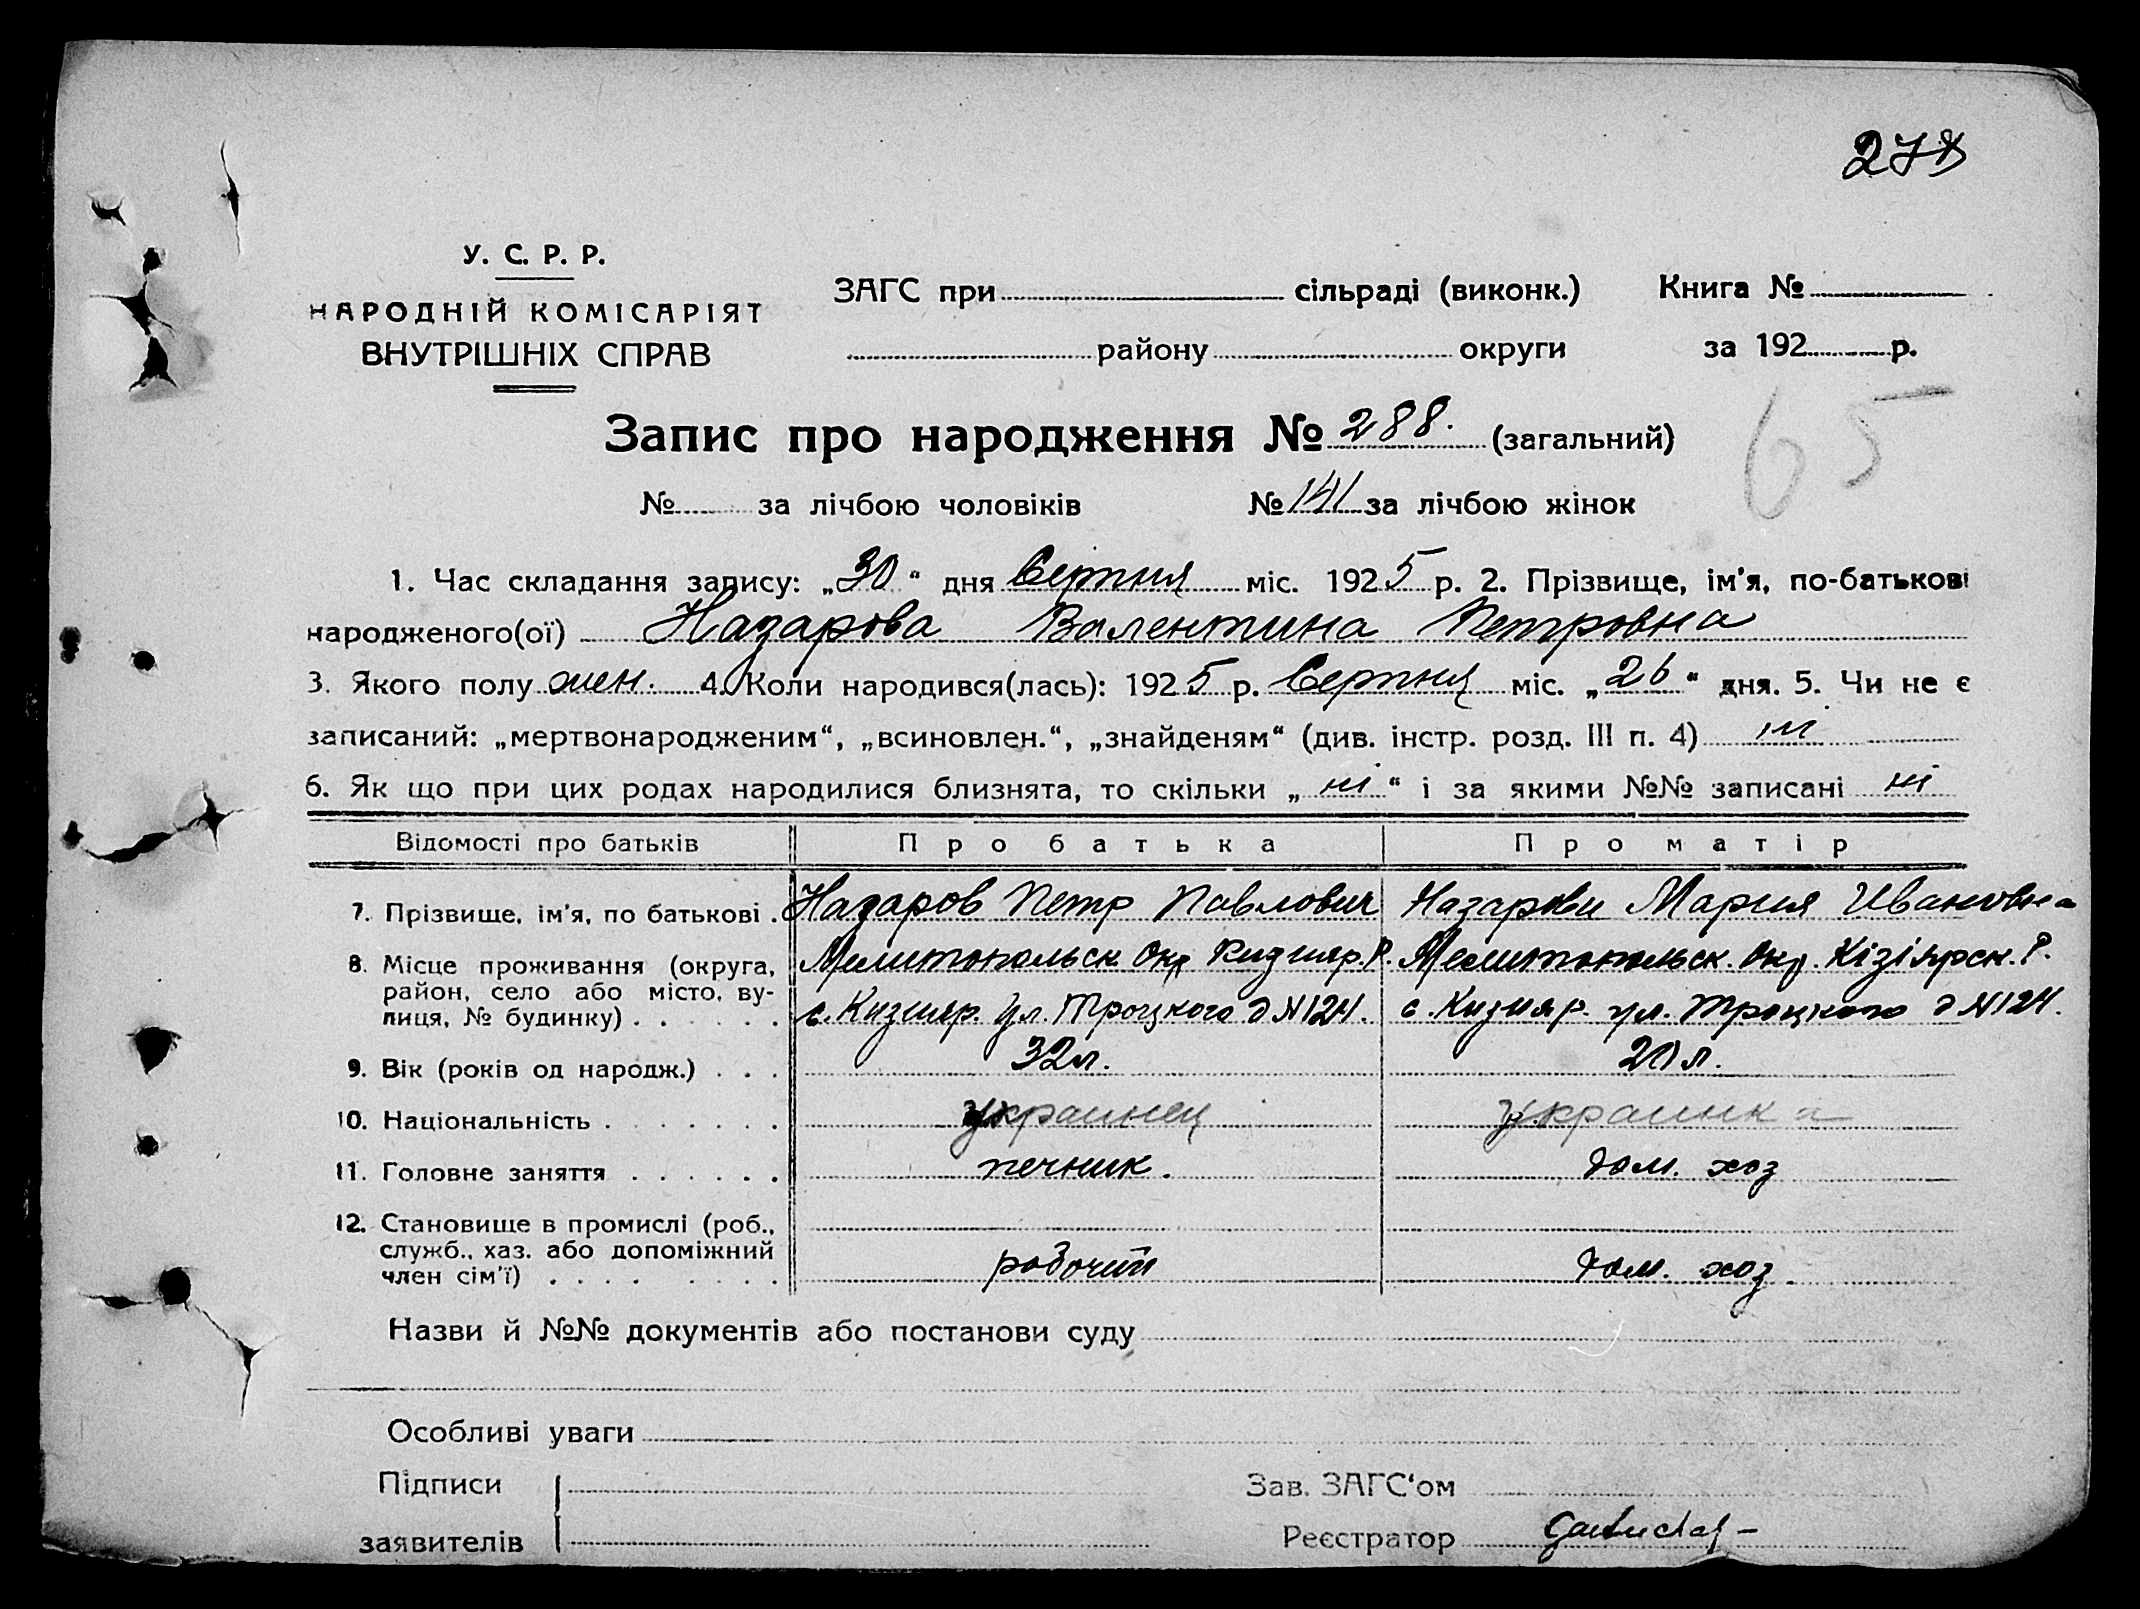 278
У. С. Р. Р.
НАРОДНІЙ КОМІСАРІЯТ
ВНУТРІШНІХ СПРАВ
ЗАГС при сільраді (виконк.) Книга №
району округи за 192 р.
Запис про народження № 288. (загальний)
65
№ за лічбою чоловіків № 141 за лічбою жінок
1. Час складання запису: „30“ дня Серпня міс. 1925 р. 2. Прізвище, ім'я, по-батькові
народженого(ої) Назарова Валентина Петровна
3. Якого полу жен. 4. Коли народився(лась): 1925 р. Серпня міс. „26“ дня. 5. Чи не є
записаний: „мертвонародженим“, „всиновлен.“, „знайденям“ (див. інстр. розд. III п. 4) ні
6. Як що при цих родах народилися близнята, то скільки „ні“ і за якими №№ записані ні
Відомості про батьків Про батька Про матір
7. Прізвище, ім'я, по батькові . Назаров Петр Павлович Назарова Мария Ивановна
8. Місце проживання (округа, Мелитопольск Окр Кизияр. Р. Мелитопольск. Окр. Кізіярск. Р.
район, село або місто, ву-
лиця, № будинку) . . . . . . с. Кизияр. Ул. Троцкого д N 124. с. Кизияр. ул. Троцкого д N 124.
9. Вік (років од народж.) . . . 32 л. 20 л.
10. Національність . . . . . . . украинец украинка
11. Головне заняття . . . . . . печник. дом. хоз
12. Становище в промислі (роб.,
служб., хаз. або допоміжний
член сім'ї) . . . . . . . . рабочий дом. хоз.
Назви й №№ документів або постанови суду
Особливі уваги
Підписи Зав. ЗАГС'ом
заявителів Реєстратор